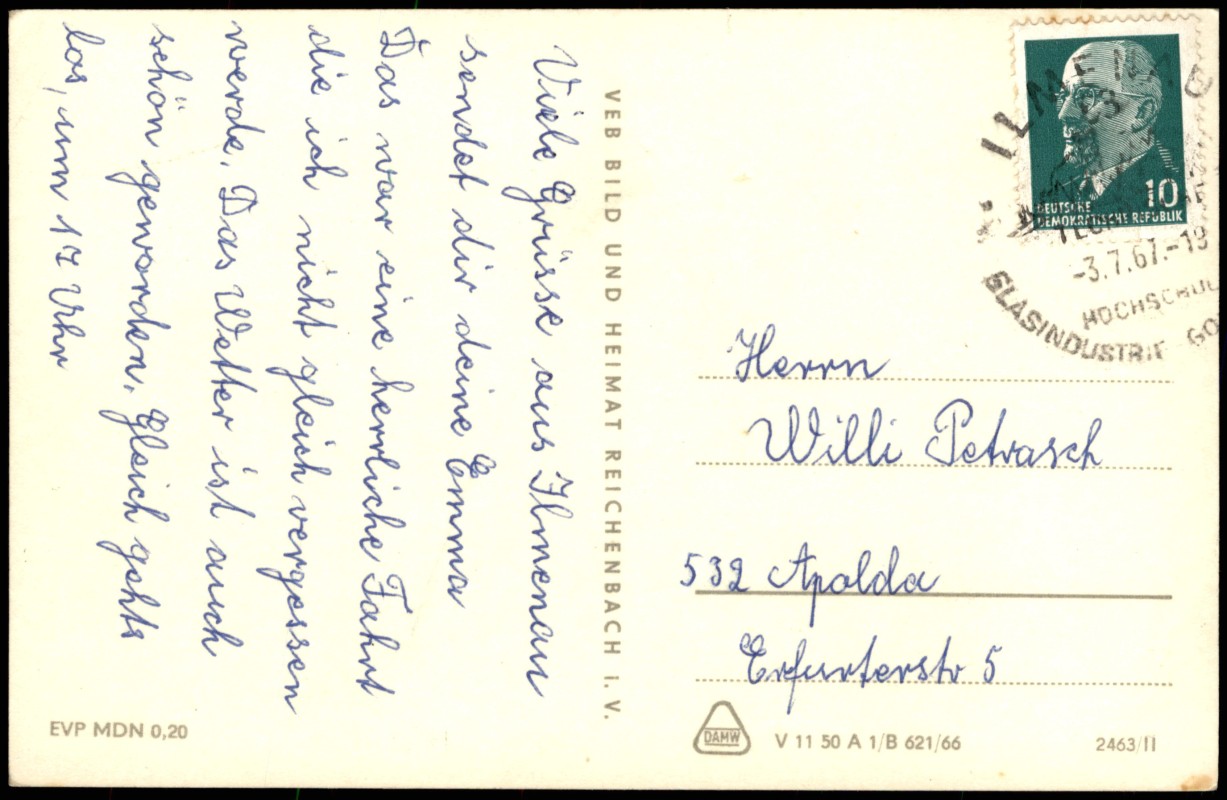 Viele Grüsse aus Ilmenau
sendet dir deine Emma
Das war eine herrliche Fahrt
die ich nicht gleich vergessen
werde. Das Wetter ist auch
schön geworden. Gleich gehts
los, um 17 Uhr
EVP MDN 0,20
VEB BILD UND HEIMAT REICHENBACH I. V.
ILMENAU
10
DEUTSCHE
DEMOKRATISCHE REPUBLIK
-3.7.67.-19
HOCHSCHUL
GLASINDUSTRIE GO
Herrn
Willi Petrasch
532 Apolda
Erfurterstr 5
DAMW
V 11 50 A 1/B 621/66
2463/II